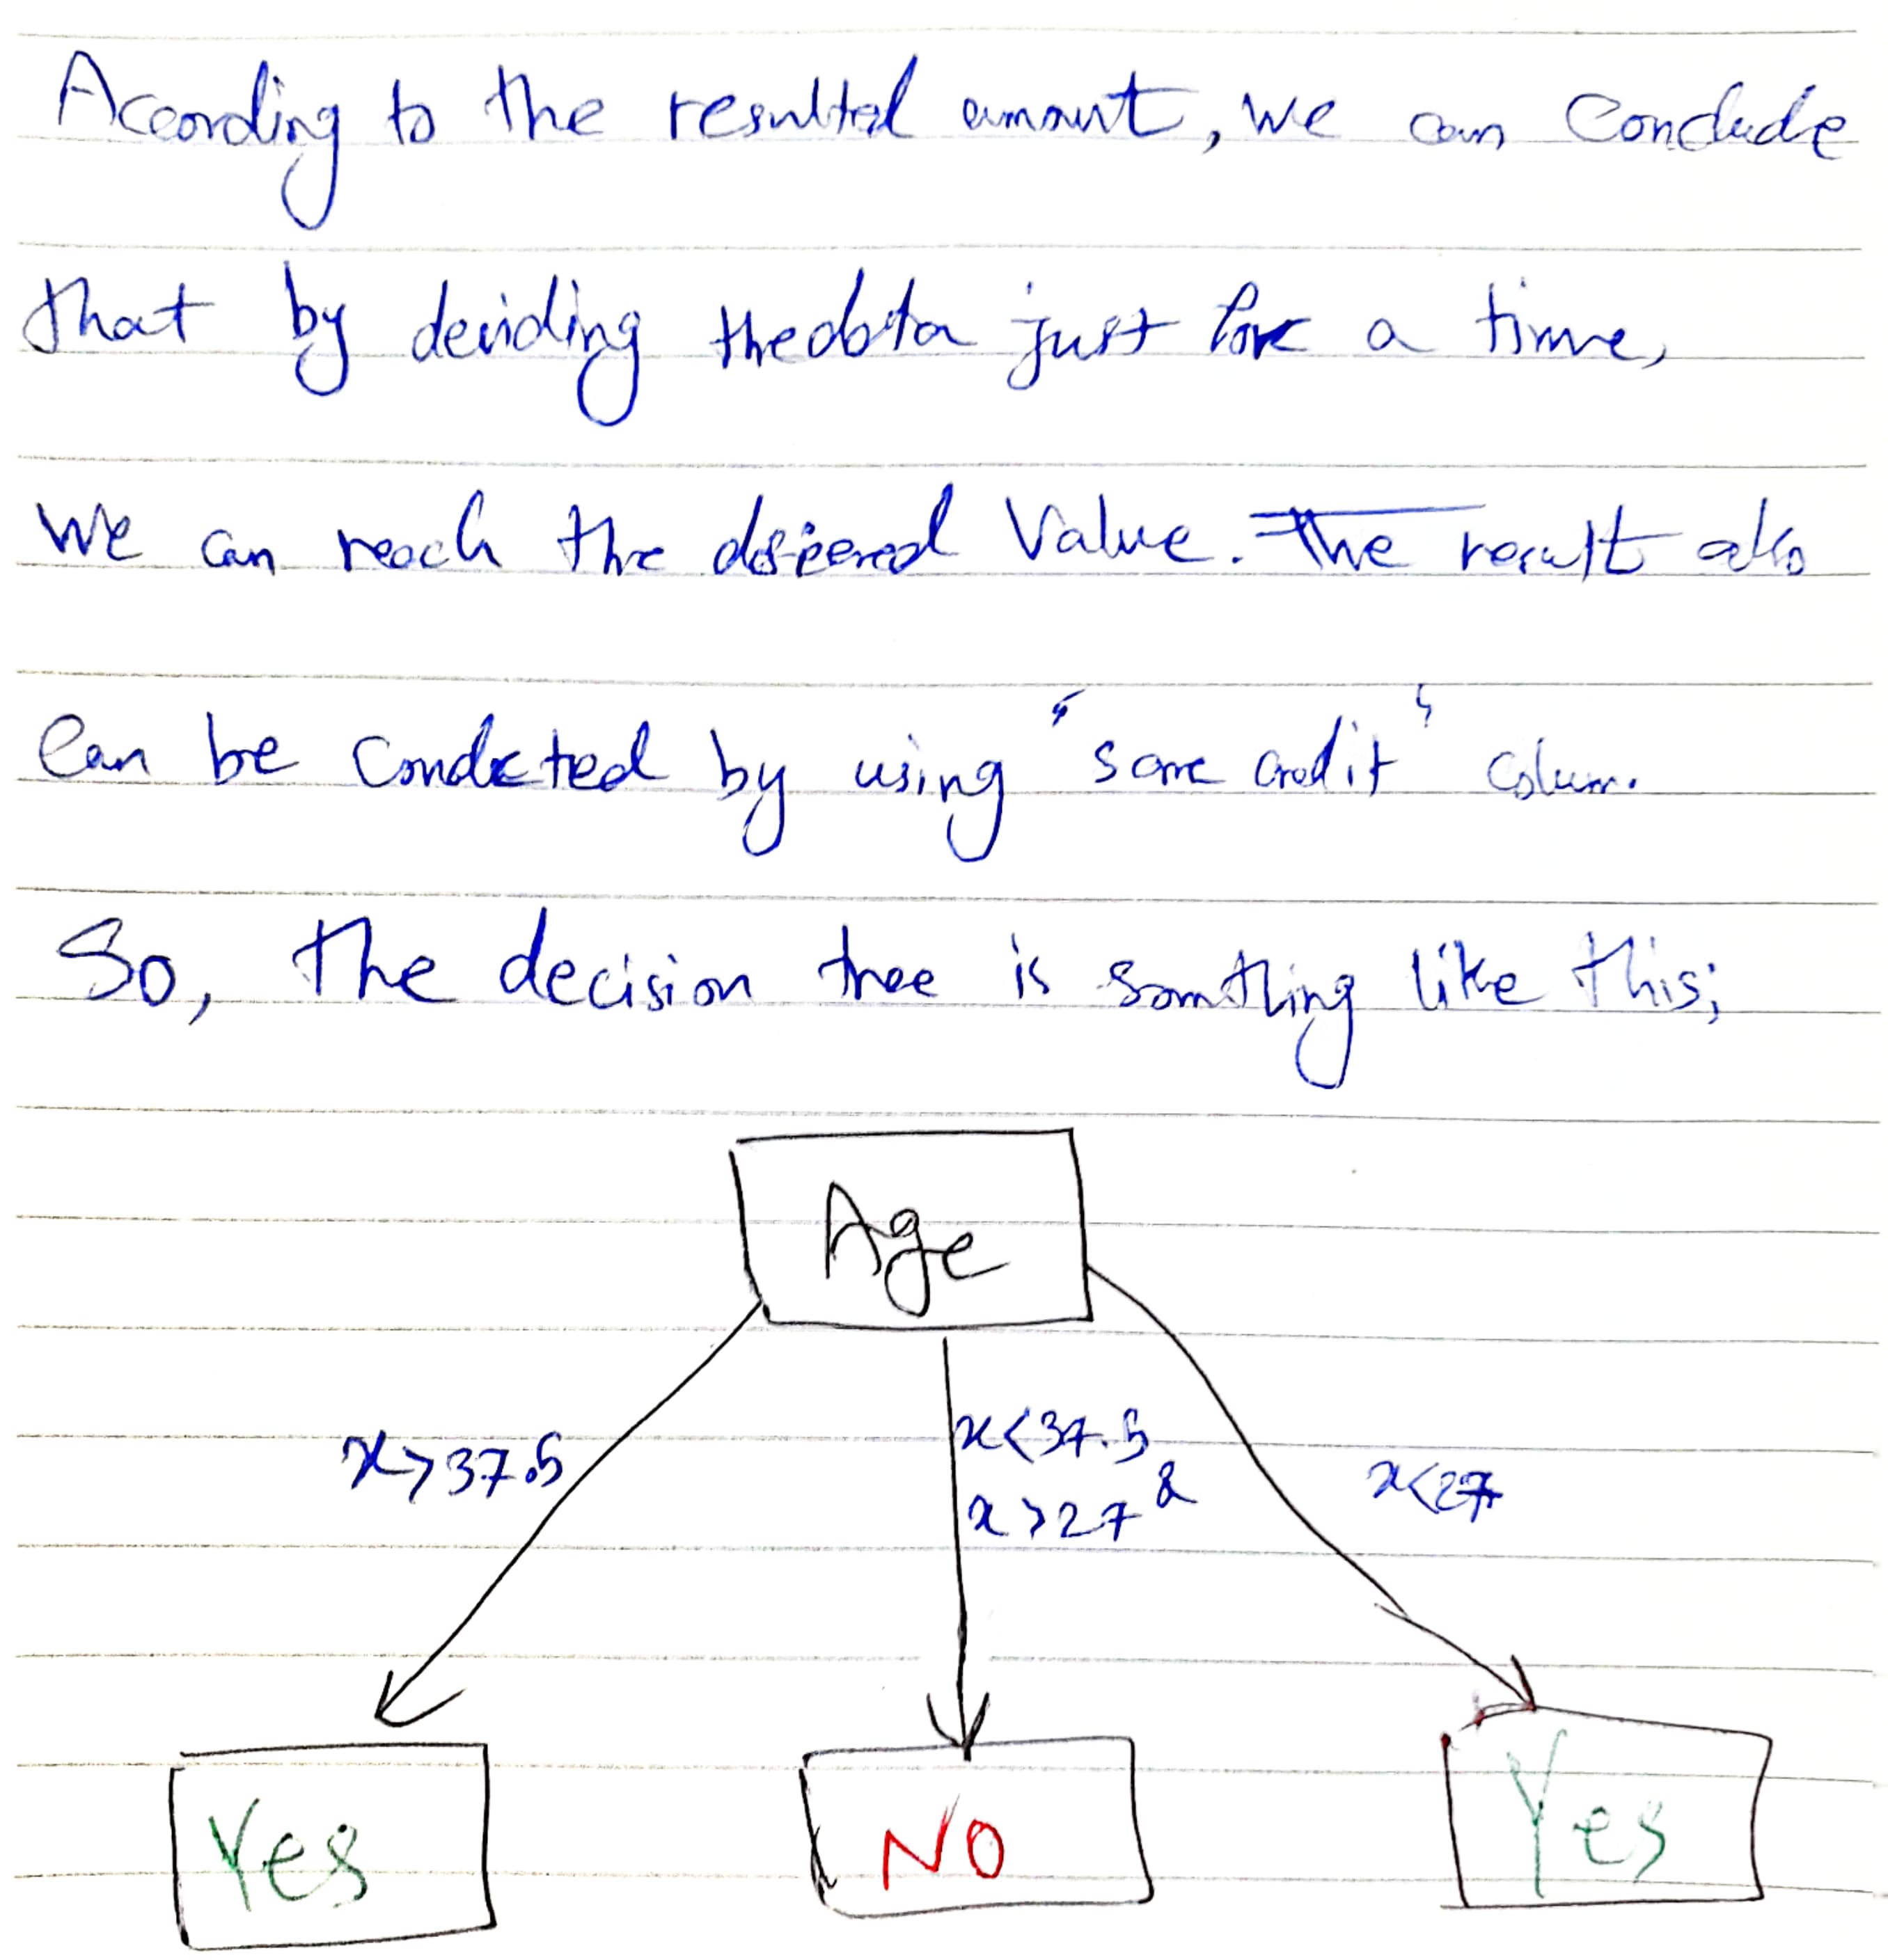 Acoording to the resulted amount, we can conclude
that by deviding the data just for a time,
we can reach the value. The result also
can be condcted by using "some credit" colum.
So, the decision tree is somthing like this;
Age
x>37.5
x<37.5 &
x>27
x<27
Yes
No
Yes